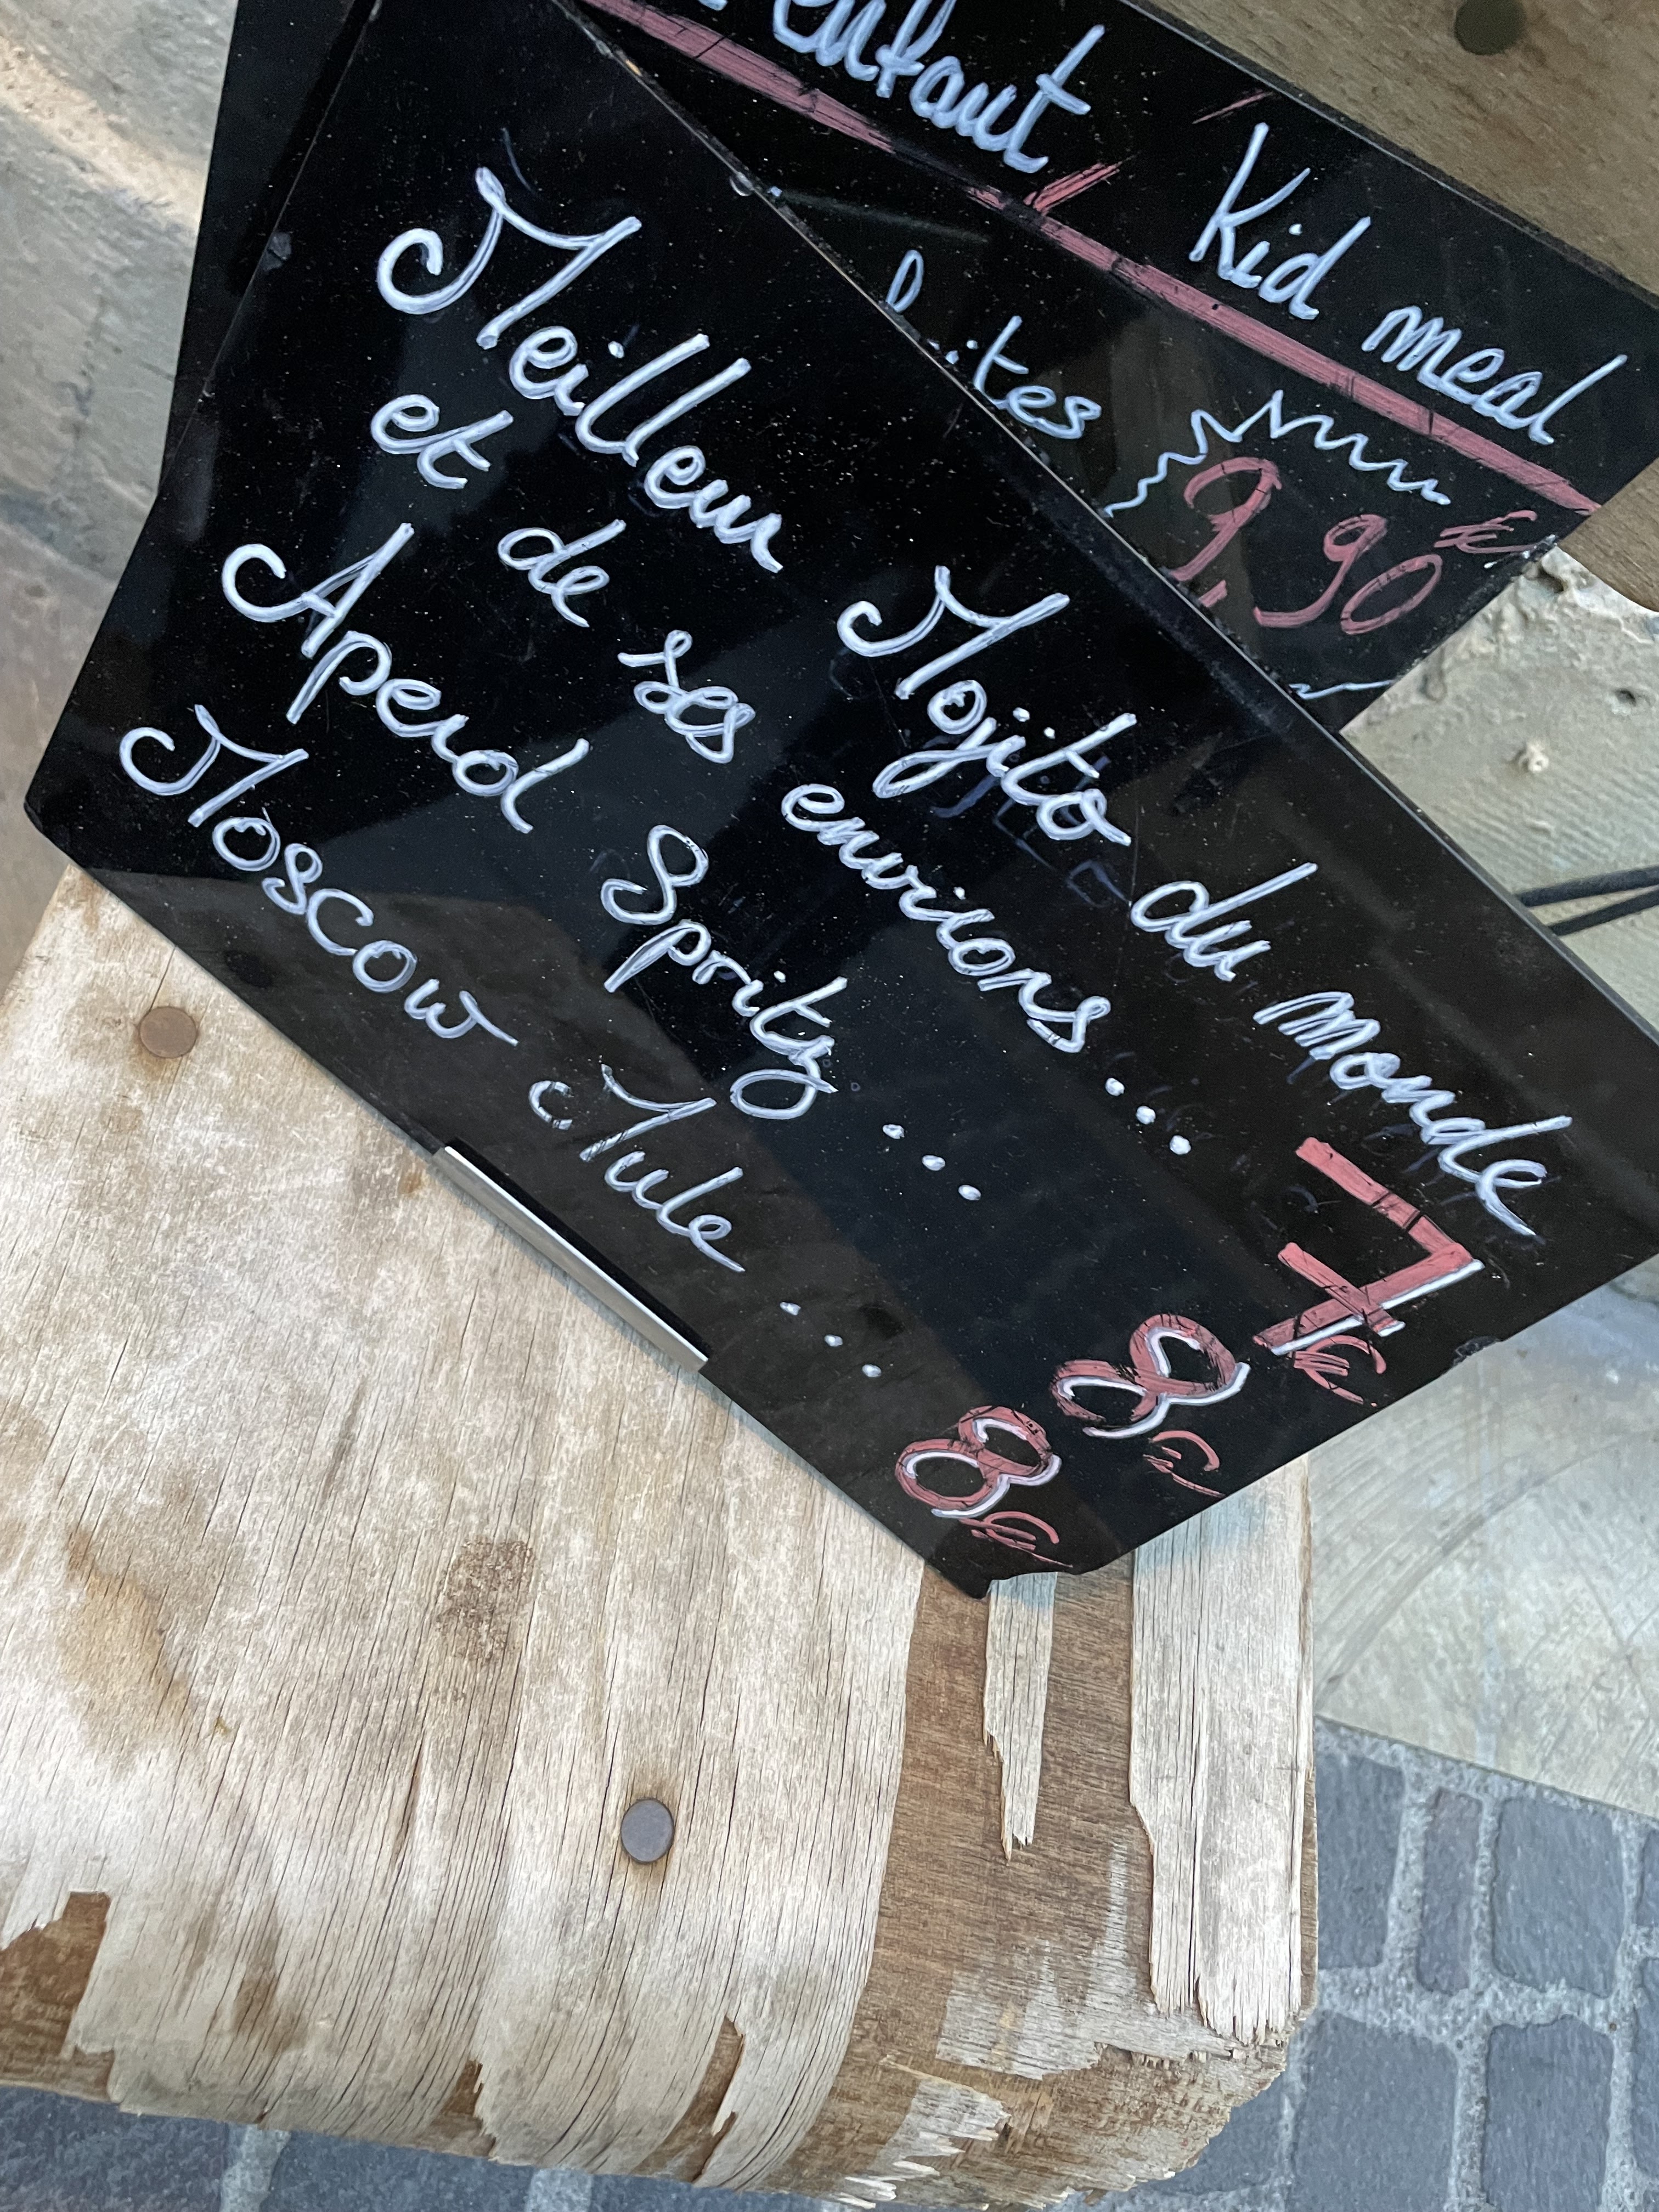 enfant / Kid meal
9,90€
Meilleur Mojito du monde
et de ses environs... 7€
Aperol Spritz ... 8€
Moscow Mule ... 8€